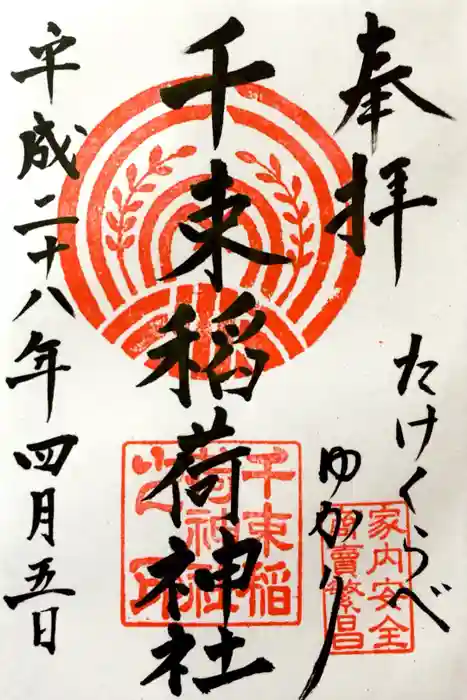 奉拝
たけくらべ
ゆかり
千束稲荷神社
平成二十八年四月五日
千束稲
荷神社
之印
家内安全
商賣繁昌